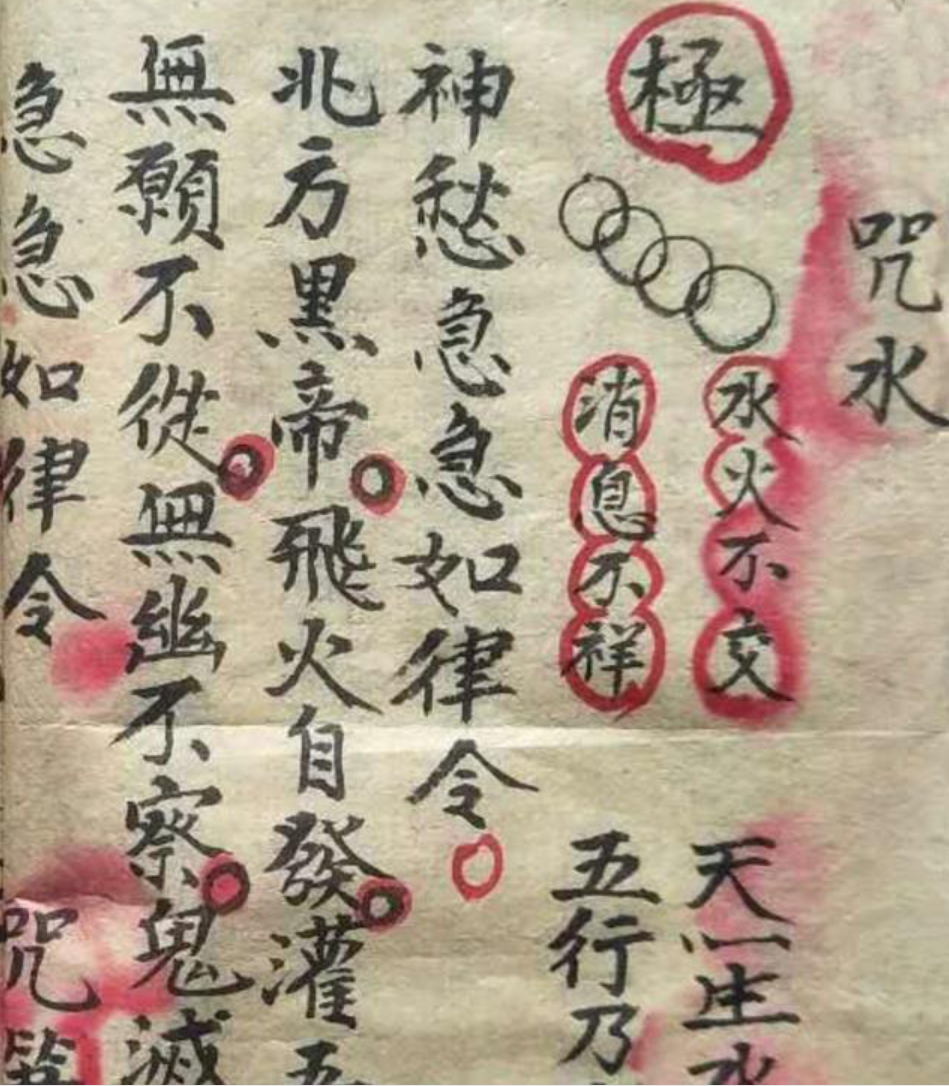 咒水
極
水火不交
消息不祥
天一生水
五行乃
神愁急急如律令
北方黑帝飛火自發灌五
無願不從無幽不察鬼滅
急急如律令
咒